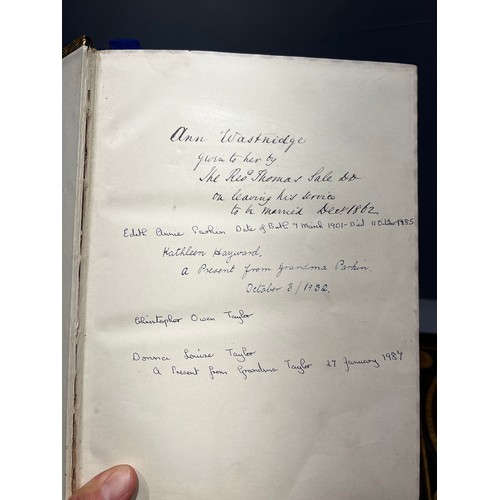 Ann Wastnidge
given to her by
The Revd Thomas Sale DD
on leaving his service
to be married Decr 1862
Edith Annie Parkin Date of Birth 7 March 1901 - Died 11 October 1985
Kathleen Hayward,
a Present from Grandma Parkin.
October 3/1932.
Christopher Owen Taylor
Donna Louise Taylor
A Present from Grandma Taylor 27 January 1987